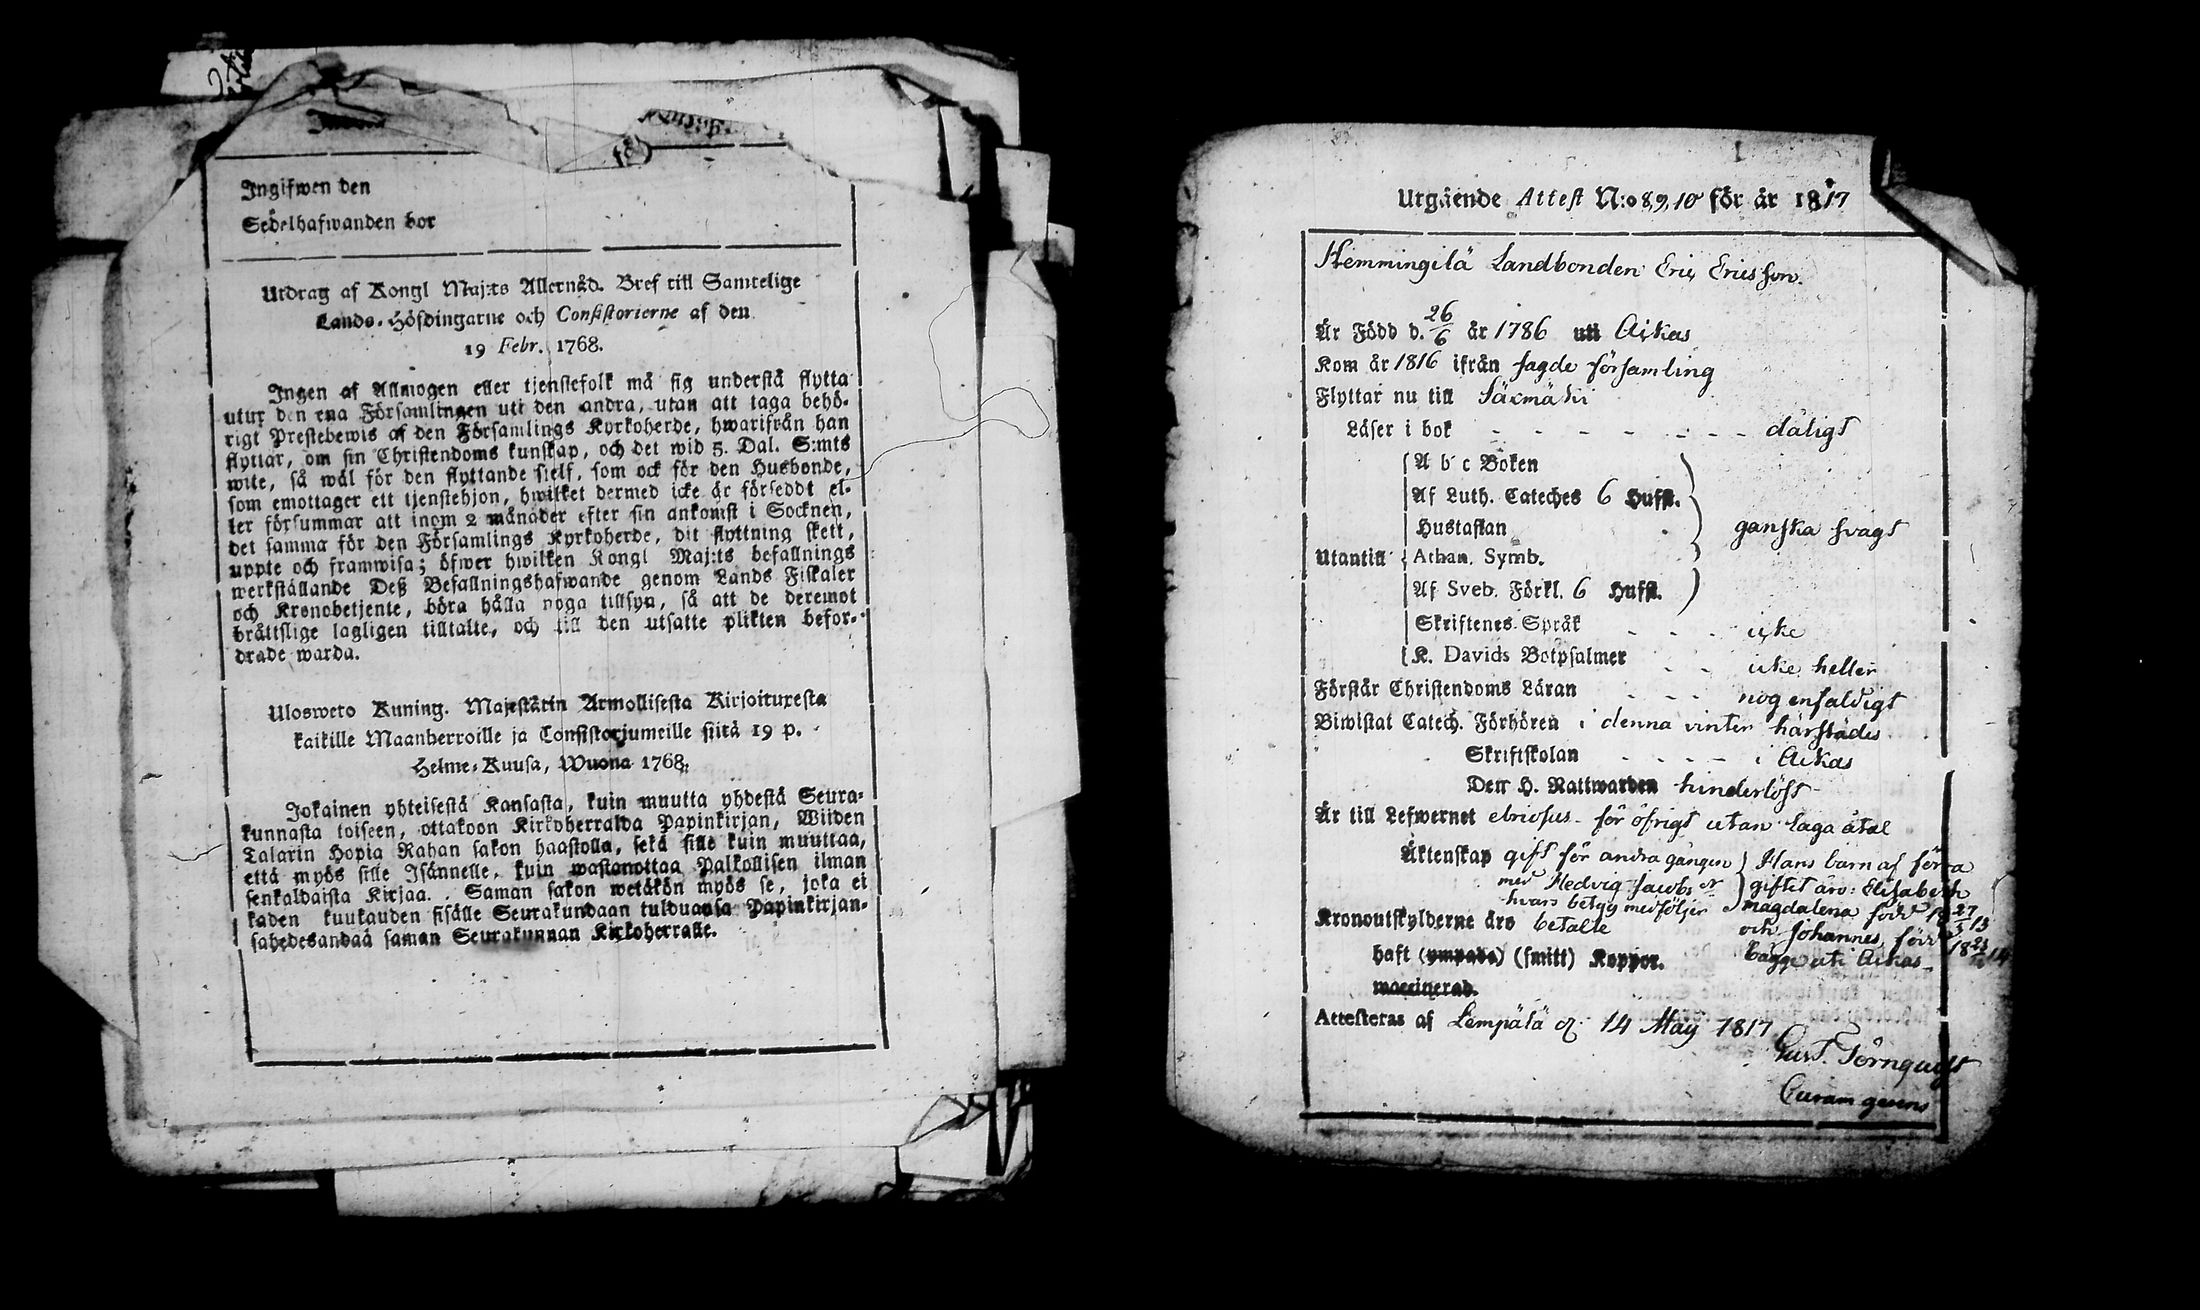 Ingifwen den
Sedelhafwanden bor
Utdrag af Kongl Maj:ts Allernåd. Bref till Samtelige
Lands-Höfdingarne och Consistorierne af den
19 Febr. 1768.
Ingen af Allmogen eller tjenstefolk må sig understå flytta
utur den ena Församlingen uti den andra, utan att taga behö-
rigt Prestebewis af den Församlings Kyrkoherde, hwarifrån han
flyttar, om sin Christendoms kunskap, och det wid 5. Dal. S:mts
wite, så wäl för den flyttande sielf, som ock för den Husbonde,
som emottager ett tjenstehjon, hwilket dermed icke är förseddt el-
ler försummar att inom 2 månader efter sin ankomst i Socknen,
det samma för den Församlings Kyrkoherde, dit flyttning skett,
uppte och framwisa; öfwer hwilken Kongl Maj:ts befallnings
werkställande Deß Befallningshafwande genom Lands Fiskaler
och Kronobetjente, böra hålla noga tillsyn, så att de deremot
bråttslige lagligen tilltalte, och till den utsatte plikten befor-
drade warda.
Ulosweto Kuning. Majestätin Armollisesta Kirjoituxesta
kaikille Maanherroille ja Consistorjumeille siitä 19 p.
Helme-Kuusa, Wuona 1768.
Jokainen yhteisestä Kansasta, kuin muutta yhdestä Seura-
kunnasta toiseen, ottakoon Kirkoherralda Papinkirjan, Wiiden
Talarin Hopia Rahan sakon haastolla, sekä sille kuin muuttaa,
että myös sille Isännelle, kuin wastanottaa Palkollisen ilman
senkaldaista Kirjaa. Saman sakon wetäkön myös se, joka ei
kaden kuukauden sisälle Seurakundaan tulduansa Papinkirjan-
sahedesandaa saman Seurakunnan Kirkoherralle.
Utgående Attest N:o 8, 9, 10 för år 1817
Hemmingilä Landbonden Eric Ericsson.
Är Född d. 26/6 år 1786 uti Aikas
Kom år 1816 ifrån sagde församling
Flyttar nu till Säxmäki
Läser i bok - - - - - - - dåligt
A b c Boken
Af Luth. Cateches 6 Hufst.
Hustaflan ganska svagt
Utantill Athan. Symb.
Af Sveb. Förkl. 6 Hufst.
Skriftenes Språk - - - icke
K. Davids Botpsalmer - - icke heller
Förstår Christendoms Läran - - - nog enfaldigt
Biwistat Catech. Förhören i denna vinter härstädes
Skriftskolan - - - - i Aikas
Den H. Nattwarden hinderlöst
Är till Lefwernet ebriosus - för öfrigt utan laga åtal
Äktenskap gift för andra gången Hans barn af förra
med Hedvig Jacobs dr giftet äro: Elisabeth
hvars betyg medföljer Magdalena född 18 27/3 13
Kronoutskylderne äro betalte och Johannes, född 18
haft (ympade) (smitt) Koppor. bägge uti Aikas
waccinerad.
Attesteras af Lempälä d. 14 May 1817
Gust. Törnquist
Curam gerens